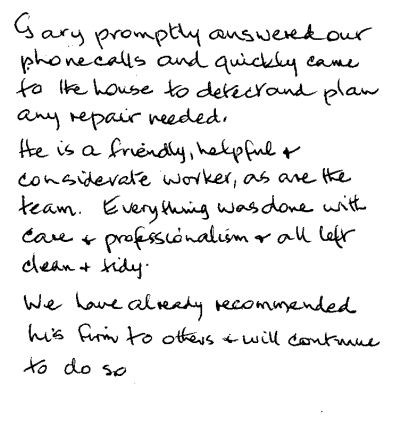 Gary promptly answered our
phone calls and quickly came
to the house to detect and plan
any repair needed.
He is a friendly, helpful +
considerate worker, as are the
team. Everything was done with
care + professionalism + all left
clean + tidy.
We have already recommended
his firm to others + will continue
to do so